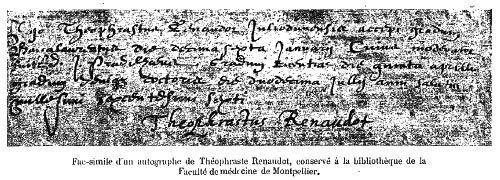 Ego Theophrastus Renaudot Iuliodunensis accepi gradum
Baccalaureatus die decima sexta Januarii
gradum die quinta aprilis
gradum die duodecima Iullij anni
millesimi sexcentesimi sexti
Theophrastus Renaudot
Fac-simile d'un autographe de Théophraste Renaudot, conservé à la bibliothèque de la
Faculté de médecine de Montpellier.